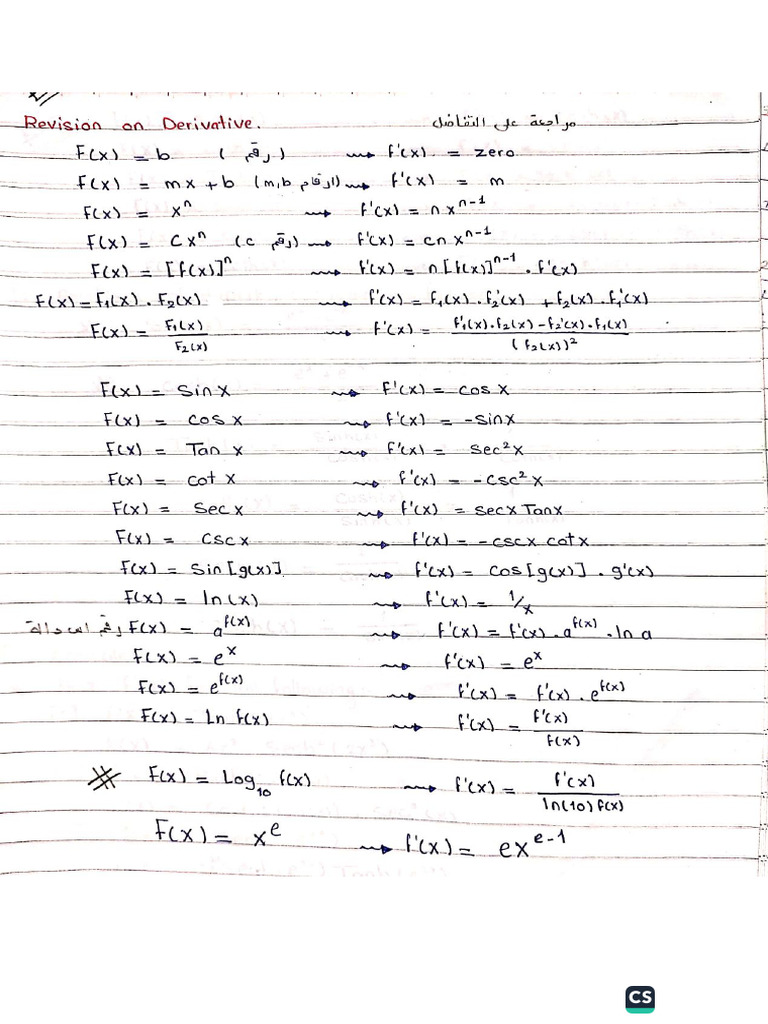 Revision on Derivative. مراجعة على التفاضل
F(x) = b (رقم) ⇝ f'(x) = zero
F(x) = mx + b (m,b ارقام) ⇝ f'(x) = m
F(x) = xⁿ ⇝ f'(x) = n xⁿ⁻¹
F(x) = C xⁿ (c رقم) ⇝ f'(x) = cn xⁿ⁻¹
F(x) = [f(x)]ⁿ ⇝ f'(x) = n [f(x)]ⁿ⁻¹ . f'(x)
F(x) = F₁(x) . F₂(x) ⇝ f'(x) = f₁(x) . f₂'(x) + f₂(x) . f₁'(x)
F(x) = F₁(x) / F₂(x) ⇝ f'(x) = f'₁(x) . f₂(x) - f₂'(x) . f₁(x) / (f₂(x))²
F(x) = Sin x ⇝ f'(x) = cos x
F(x) = cos x ⇝ f'(x) = -sinx
F(x) = Tan x ⇝ f'(x) = sec²x
F(x) = cot x ⇝ f'(x) = -csc²x
F(x) = Sec x ⇝ f'(x) = secx Tanx
F(x) = Csc x ⇝ f'(x) = -cscx cotx
F(x) = Sin [g(x)] ⇝ f'(x) = cos [g(x)] . g'(x)
F(x) = ln(x) ⇝ f'(x) = 1/x
رقم اس دالة F(x) = a^f(x) ⇝ f'(x) = f'(x) . a^f(x) . ln a
F(x) = eˣ ⇝ f'(x) = eˣ
F(x) = e^f(x) ⇝ f'(x) = f'(x) . e^f(x)
F(x) = Ln f(x) ⇝ f'(x) = f'(x) / f(x)
F(x) = Log₁₀ f(x) ⇝ f'(x) = f'(x) / ln(10) f(x)
F(x) = x^e ⇝ f'(x) = ex^e-1
CS